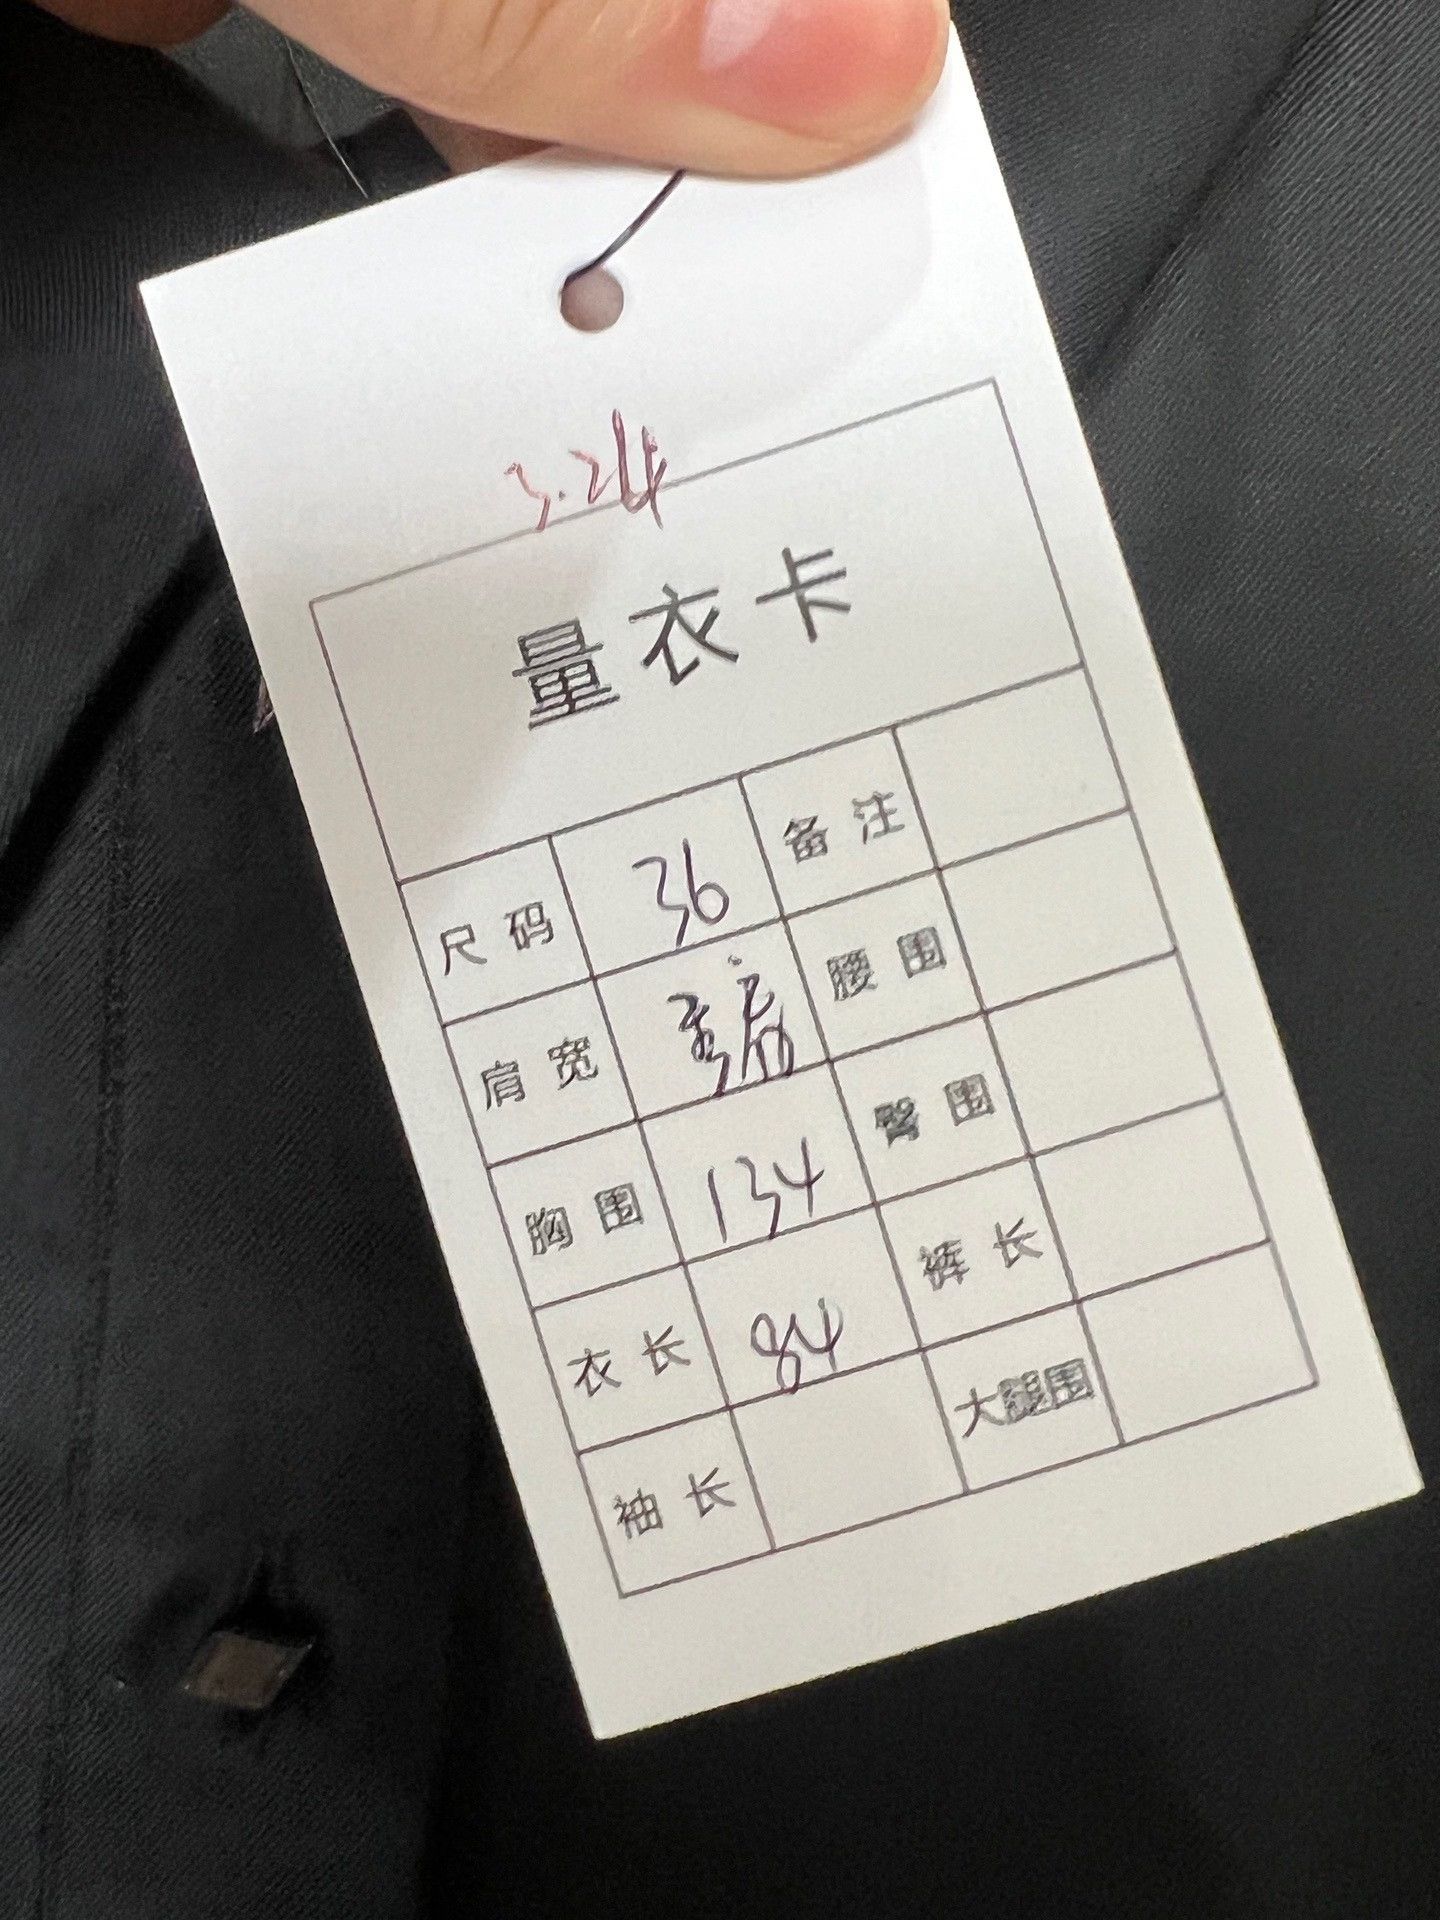 3.24
量衣卡
尺码 36 备注
肩宽 腰围
胸围 134 臀围
衣长 84 裤长
袖长 大腿围